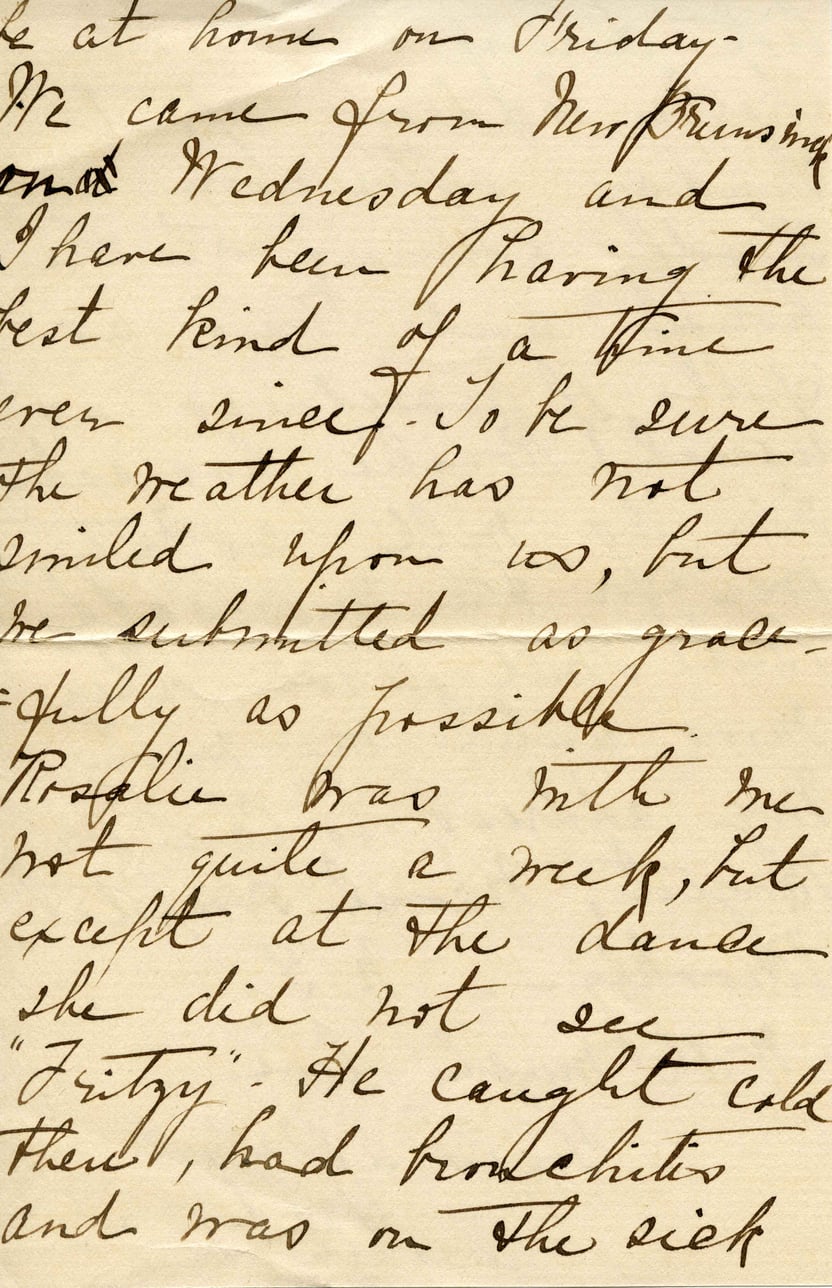 be at home on Friday-
We came from New Brunswick
on Wednesday and
I have been having the
best kind of a time
ever since. - To be sure
the weather has not
smiled upon us, but
we submitted as grace-
=fully as possible.
Rosalie was with me
not quite a week, but
except at the dance
she did not see
"Fritzy" - He caught cold
then, had bronchitis
and was on the sick